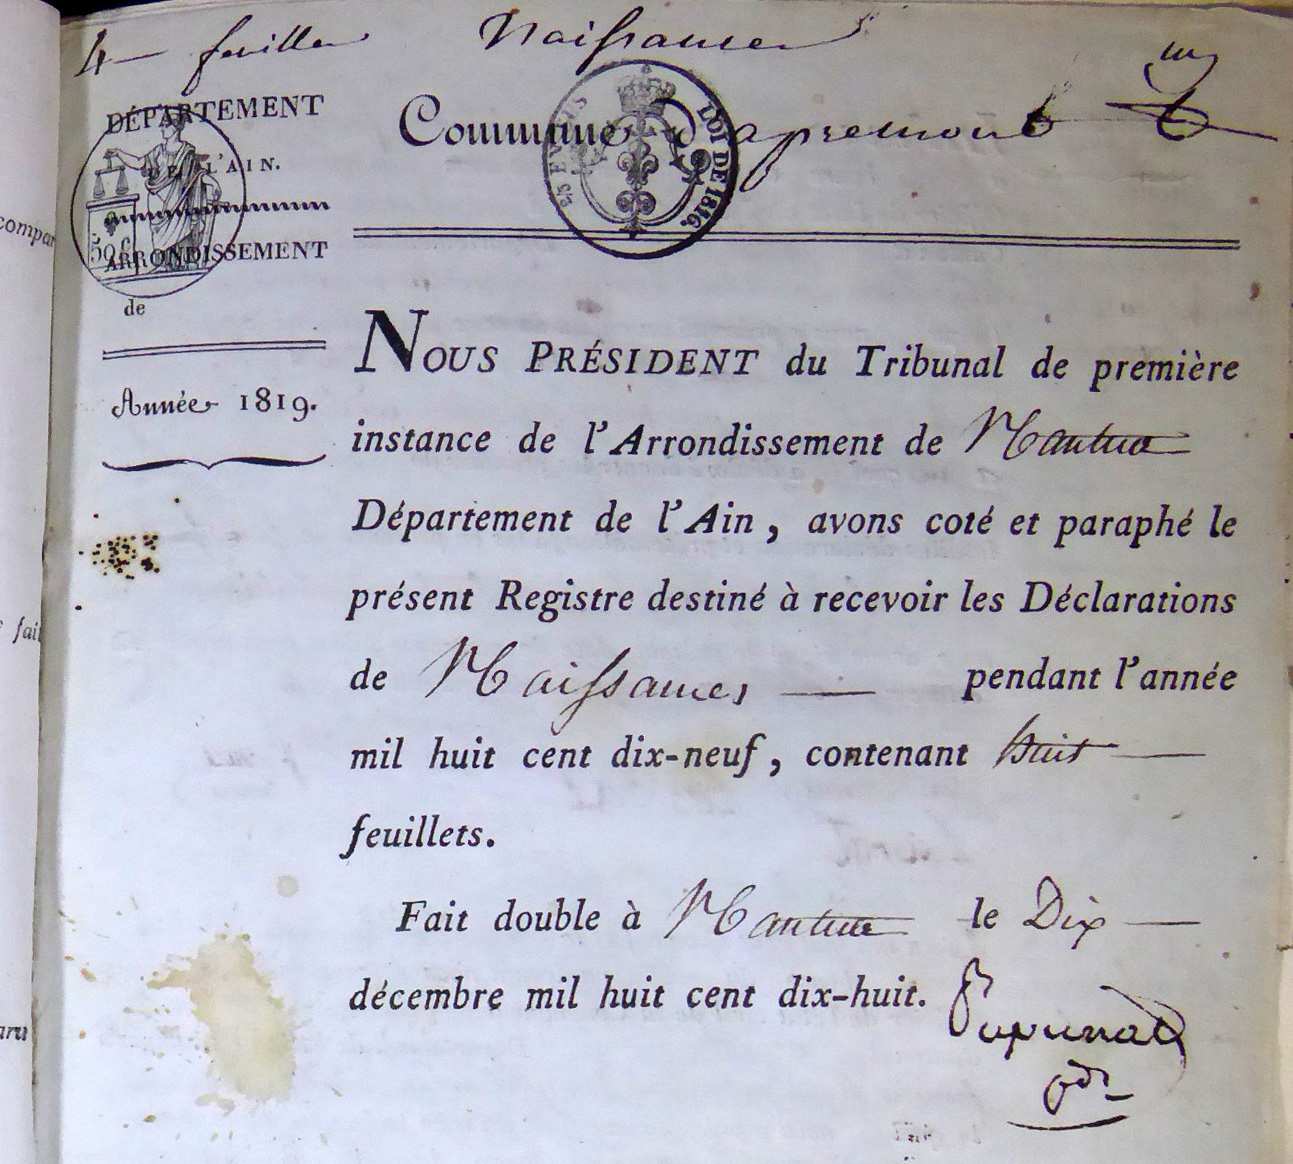 4 feuilles Naissances
DÉPARTEMENT
DE L'AIN.
ARRONDISSEMENT
de
50 c
Année 1819.
Commune d'apremont
LOI DE 1816.
NOUS PRÉSIDENT du Tribunal de première
instance de l'Arrondissement de Nantua
Département de l'Ain, avons coté et paraphé le
présent Registre destiné à recevoir les Déclarations
de Naissances pendant l'année
mil huit cent dix-neuf, contenant huit
feuillets.
Fait double à Nantua le Dix
décembre mil huit cent dix-huit.